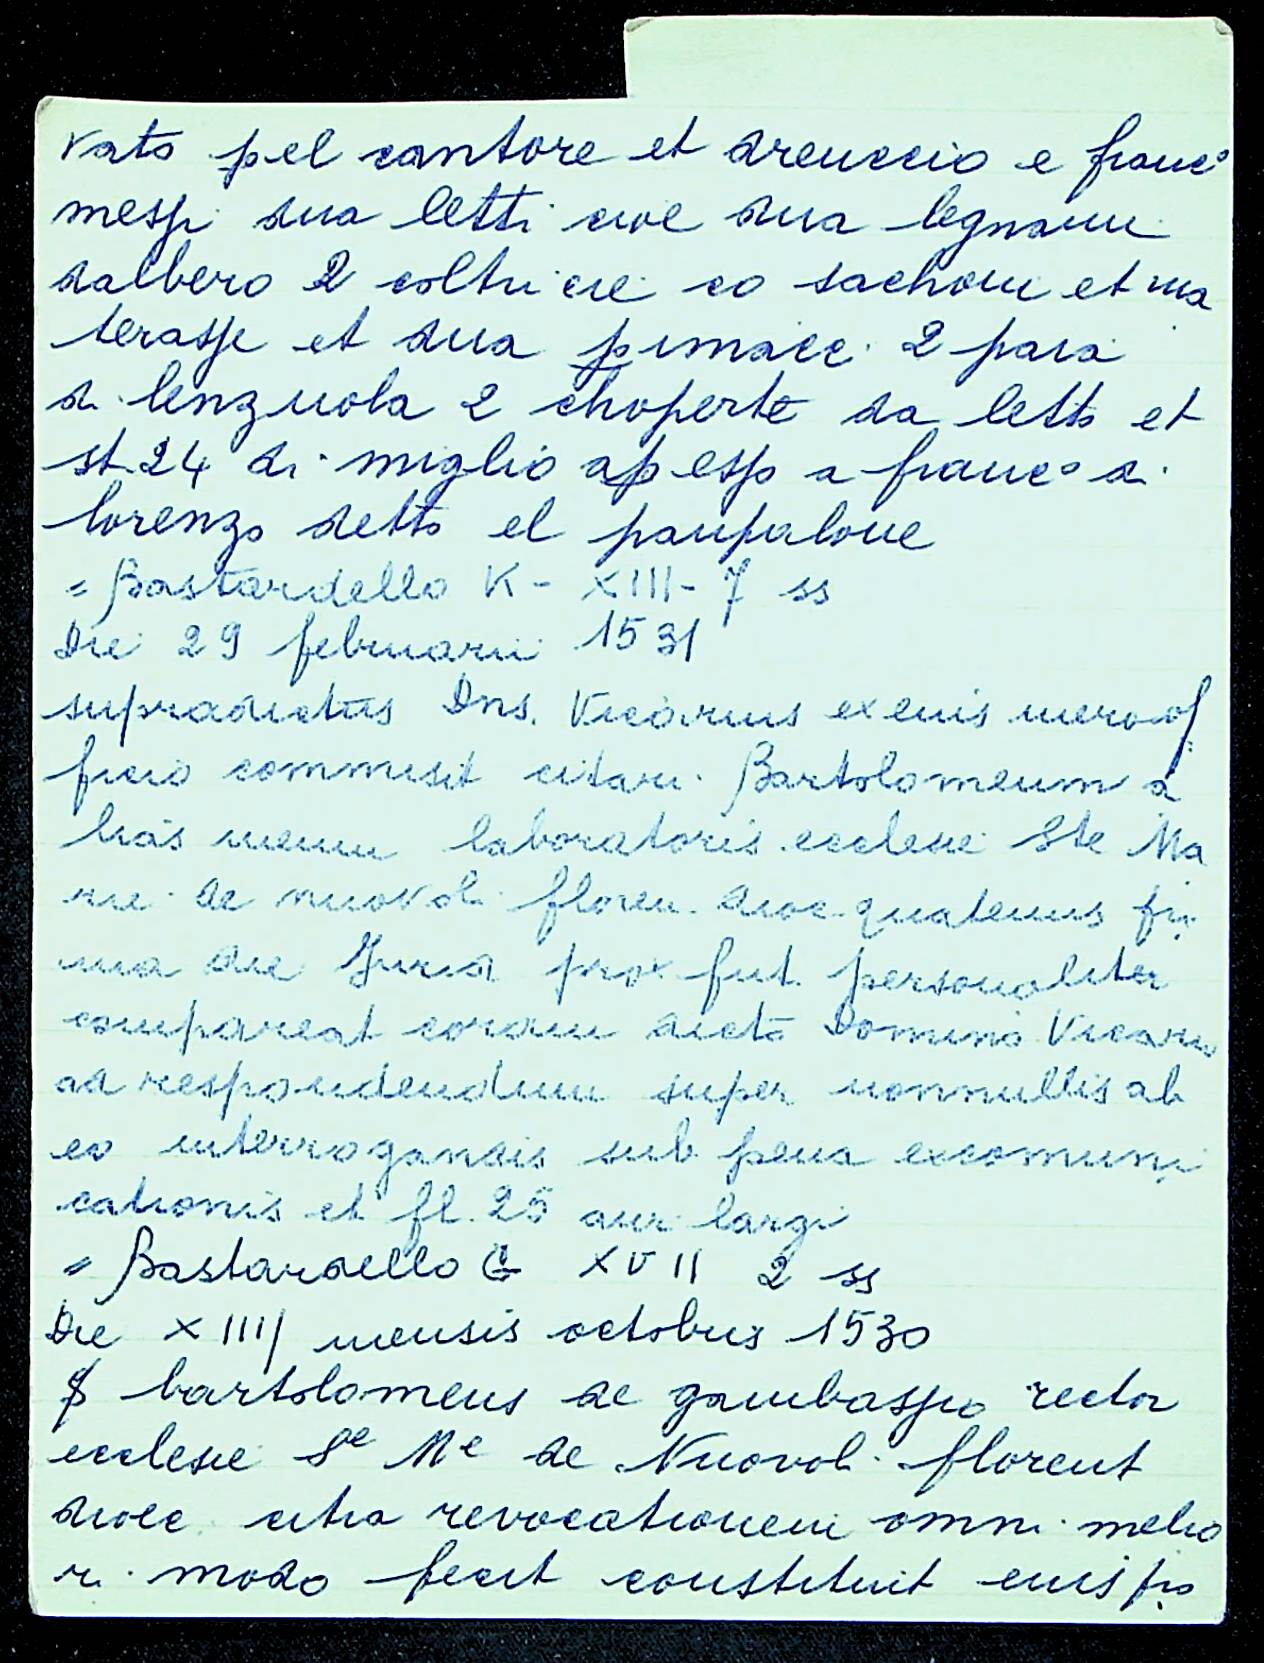 vato pel cantore et dreuccio e franc°
messi dua letti cioe dua legnami
dalbero 2 coltricie co sachoni et ma
terasse et dua pimacc. 2 paia
di lenzuola 2 choperte da letto et
st. 24 di miglio apesso a franc° di
lorenzo detto el panpalone
= Bastardello K - XIII - 7 ss
Die 29 februarii 1531
supradictus Dns. Vicarius ex eius mero of
ficio commisit citari Bartolomeum a
lias menni laboratoris ecclesie Ste Ma
rie de nuovoli floren. dioc. quatenus pri
ma die Juria prox fut. personaliter
compareat coram dicto Domino Vicario
ad respondendum super nonnullis ab
eo interrogandis sub pena excomuni
cationis et fl. 25 auri largi
= Bastardello G XVII 2 ss
Die XIIII mensis octobris 1530
bartolomeus de gambassio rector
ecclesie Se Me de Nuovoli florent
dioce citra revocationem omni melio
ri modo fecit constituit eius pro